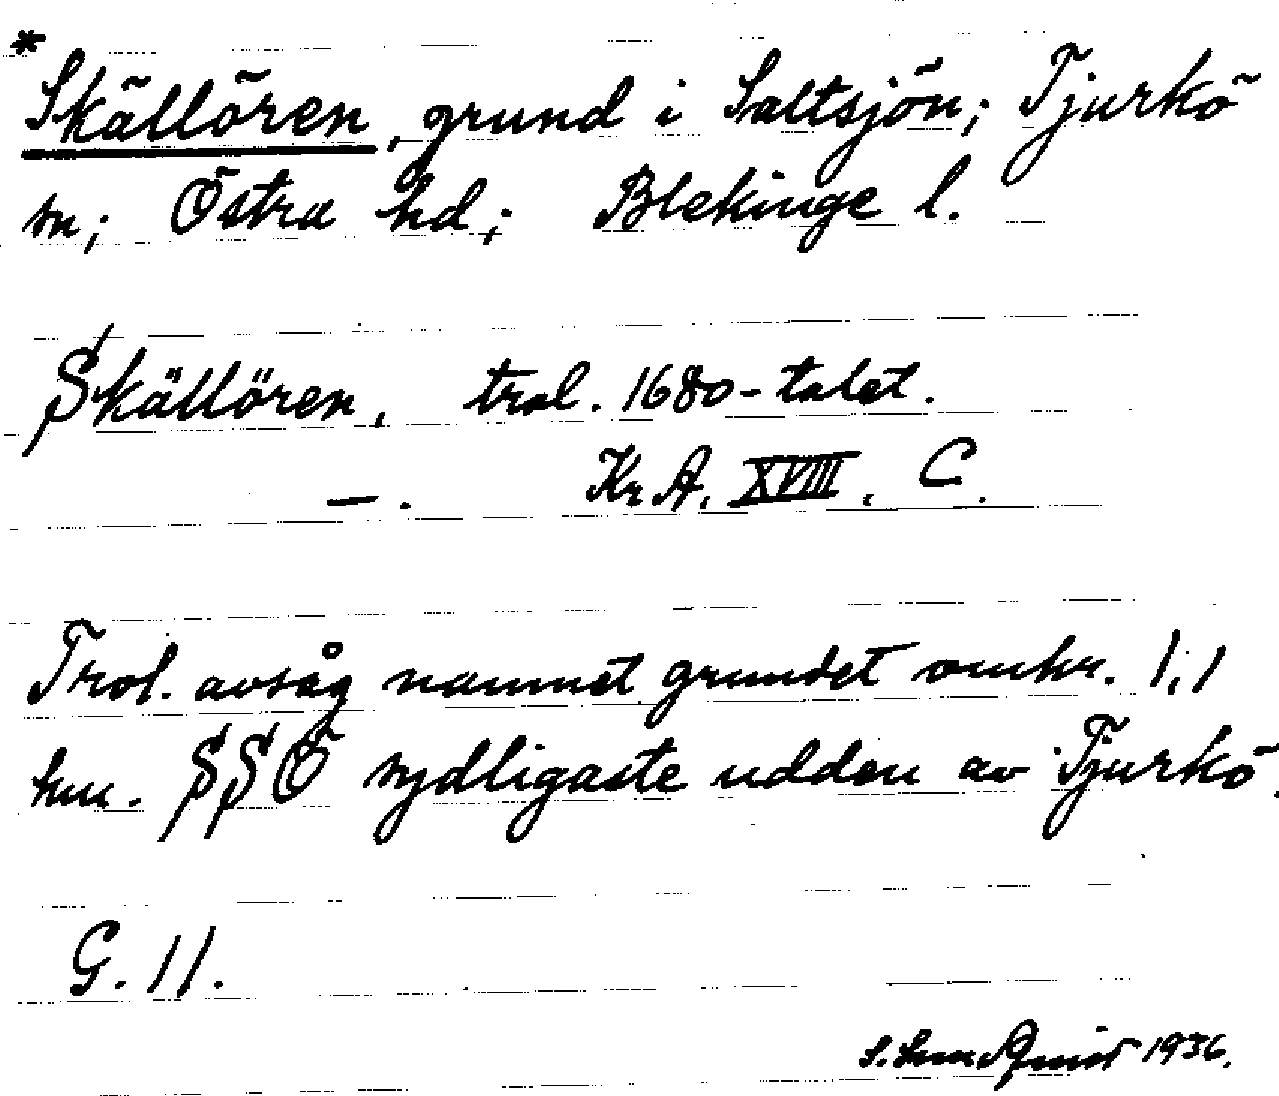 *Skällören, grund i Saltsjön; Tjurkö
sn; Östra hd; Blekinge l.
Skällören, trol. 1680-talet.
—. Kr A. XVIII, C.
Trol. avsåg namnet grundet omkr. 1,1
km. SSO sydligaste udden av Tjurkö.
G. 11.
1936.